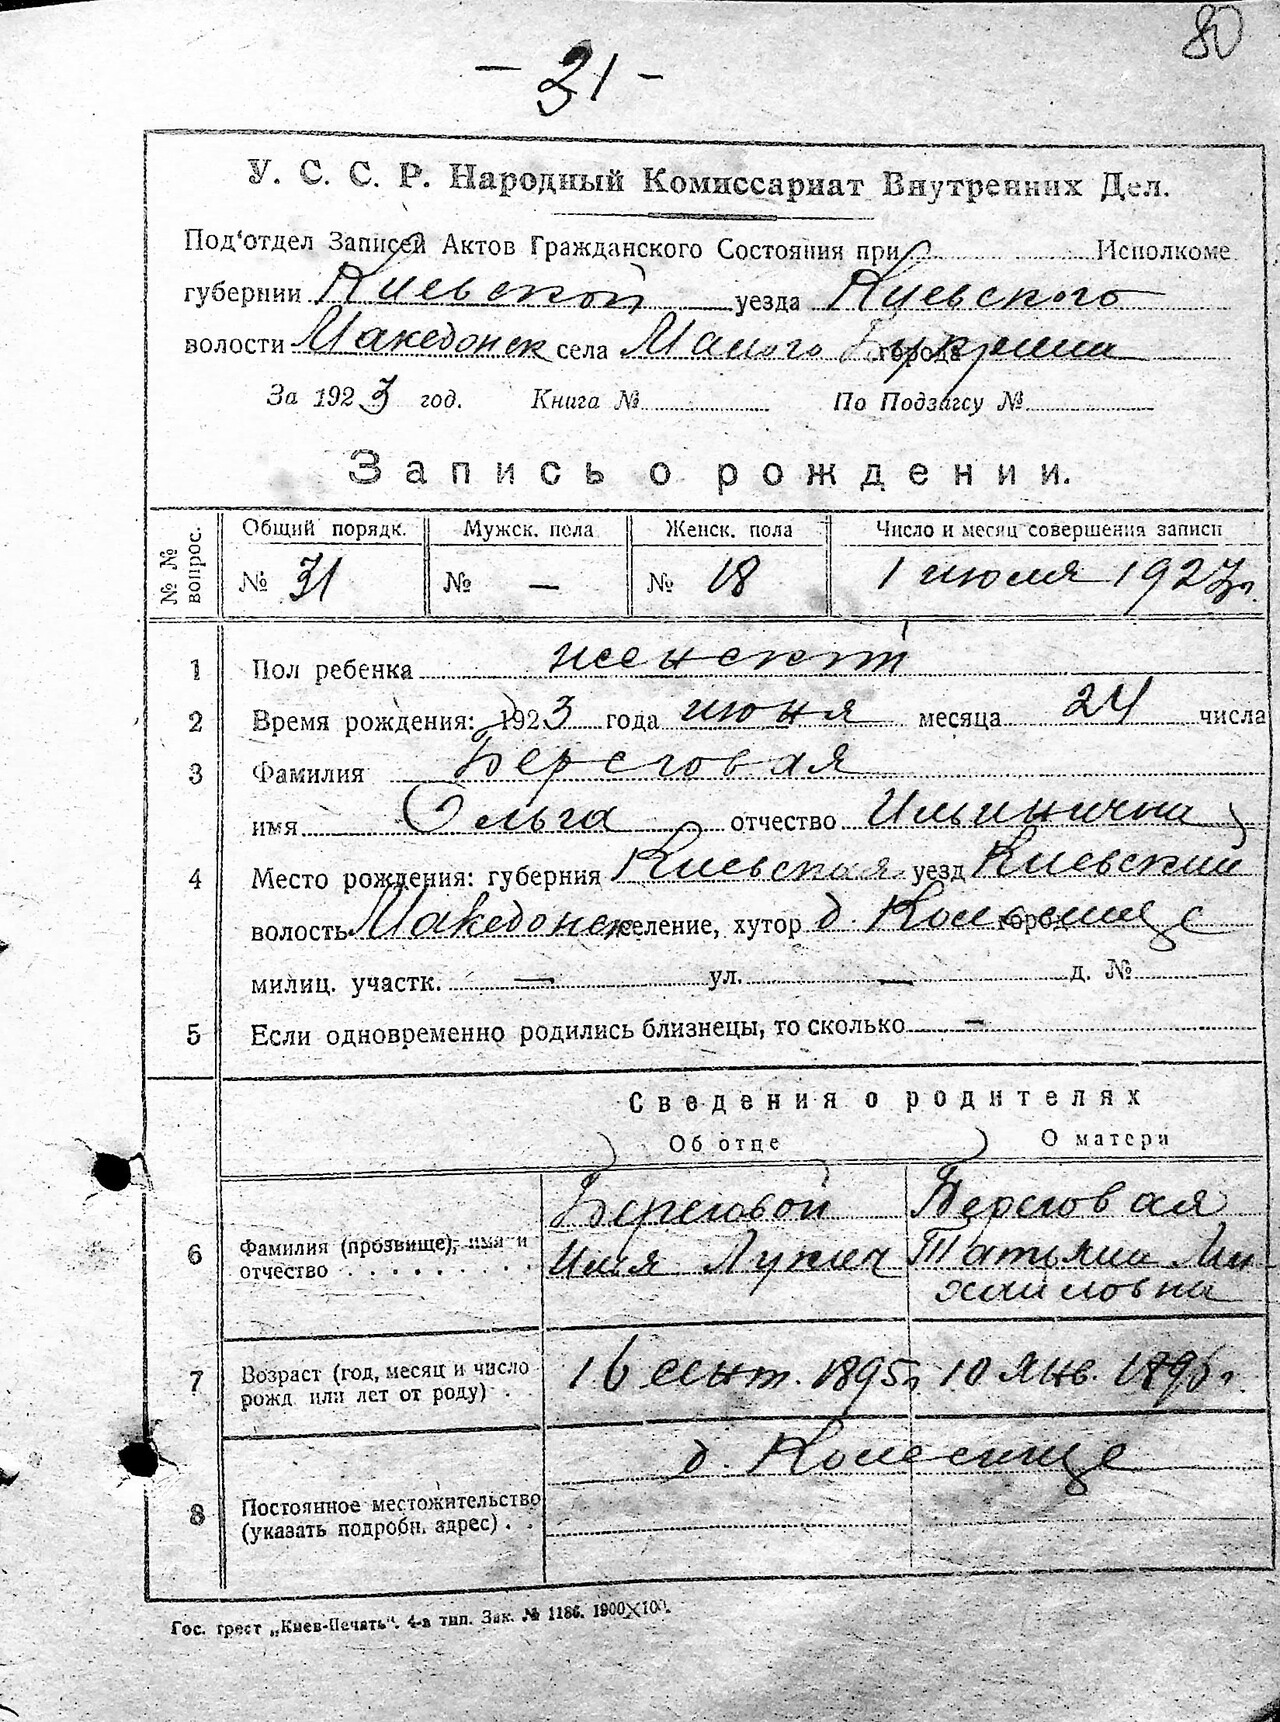 80
- 31 -
У. С. С. Р. Народный Комиссариат Внутренних Дел.
Под'отдел Записей Актов Гражданского Состояния при Исполкоме
губернии Киевской уезда Киевского
волости Македонск села Малого Букрина города
За 1923 год. Книга № По Подзагсу №
Запись о рождении.
№ № вопрос. Общий порядк. Мужск. пола Женск. пола Число и месяц совершения записи
№ 31 № — № 18 1 июля 1923 г.
1 Пол ребенка женский
2 Время рождения: 1923 года июня месяца 24 числа
3 Фамилия Береговая
имя Ольга отчество Ильинична
4 Место рождения: губерния Киевская уезд Киевский
волость Македонск селение, хутор д. город
милиц. участк. — ул. — д. №
5 Если одновременно родились близнецы, то сколько —
Сведения о родителях
Об отце О матери
Береговой Береговая
6 Фамилия (прозвище), имя и Илья Лукич Татьяна Ми-
отчество хайловна
7 Возраст (год, месяц и число 16 сент. 1895 г. 10 янв. 1896 г.
рожд. или лет от роду)
д. Колесище
8 Постоянное местожительство
(указать подробн. адрес)
Гос. трест „Киев-Печать“. 4-а тип. Зак. № 1186. 1900×100.